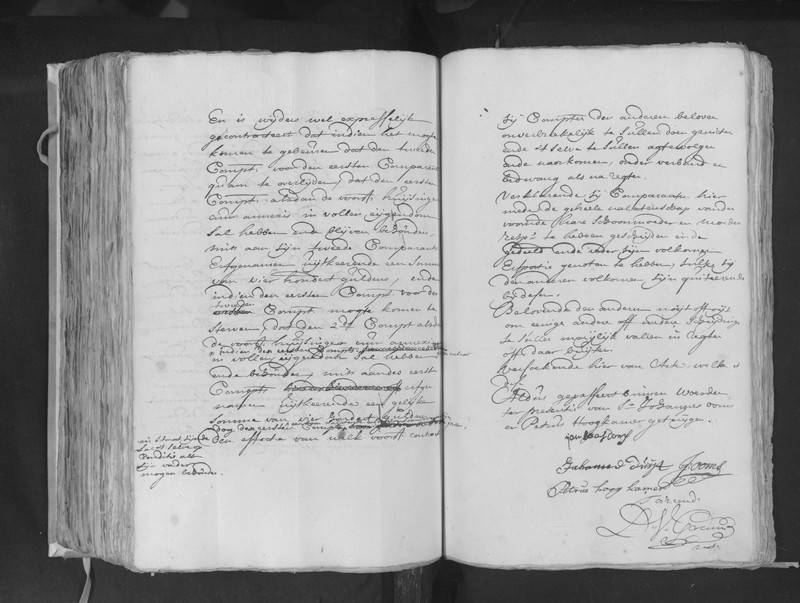 En is wijders wel expresselijk
gecontracteert dat indien het mogte
komen te gebeuren dat den tweede
Compt. voor den eersten Comparant
quam te overlijden, dat den eerste
Compt. alsdan de voorsz. huijsinge
cum annexis in vollen eijgendom
sal hebben ende blijven behouden,
mits aan sijn tweede Comparants
Erfgenamen uijtkeerende een somme
van vier hondert guldens, ende
indien den eersten Compt. voor den
tweeden
Compt. mogte komen te
sterven, dat den 2de Compt. alsdan
de voorsz. huijsinge cum annexis
in vollen eijgendom sal hebben
ende behouden, mits aan des eerste
Compts. erfge
namen uijtkeerende een gelijke
somme van vier hondert guldens
den eersten
van welk voorsz. contract
mogen behouden.
sij Compten den anderen beloven
onverbrekelijk te sullen doen genieten
ende 't selve te sullen agtervolgen
ende naarkomen, onder verband en
bedwang als na regten.
Verklarende sij Comparanten hier
mede de geheele nalatenschap van den
voorn. haare schoonmoeder en moeder
respe. te hebben gescheijden en de
gedeelt ende ieder sijn volkomen
te hebben, sulks sij
den anderen volkomen sijn quiteerende
bij desen.
Belovende den anderen nooijt off oijt
om eenige andere off
te sullen moeijelijk vallen in regten
off daar buijten.
Versoekende hier van Acte, welke is
Aldus gepasseert binnen Woerden
ter presentie van Sr. Johannes ooms
en Petrus Hoogkamer getuijgen.
Jooms
Petrus hoog kamer